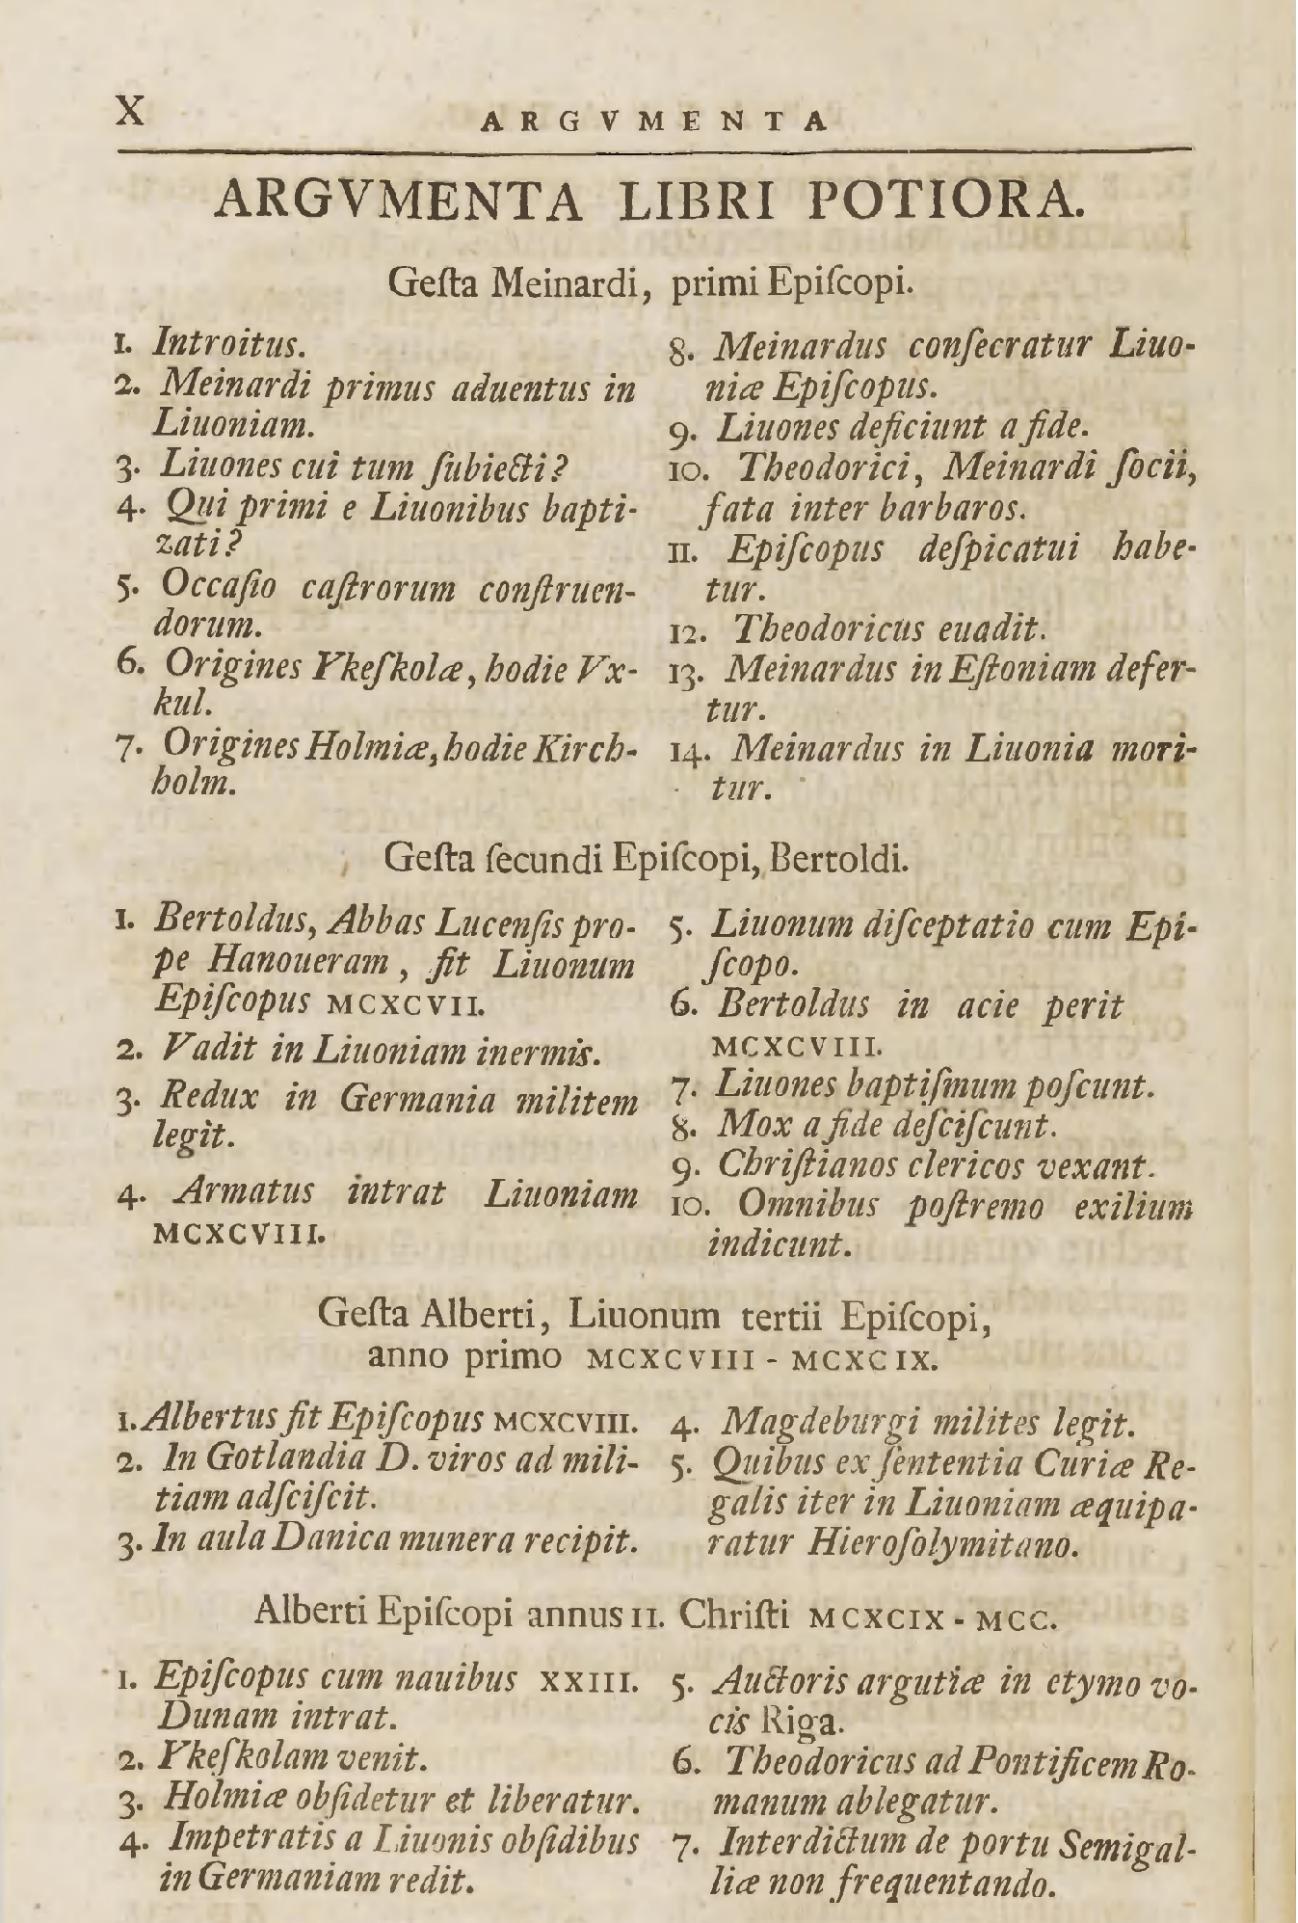 X
ARGVMENTA
ARGVMENTA LIBRI POTIORA.
Geſta Meinardi, primi Epiſcopi.
1. Introitus.
2. Meinardi primus aduentus in
Liuoniam.
3. Liuones cui tum ſubiecti?
4. Qui primi e Liuonibus bapti-
zati?
5. Occaſio caſtrorum conſtruen-
dorum.
6. Origines Ykeſkolæ, hodie Vx-
kul.
7. Origines Holmiæ, hodie Kirch-
holm.
8. Meinardus conſecratur Liuo-
niæ Epiſcopus.
9. Liuones deficiunt a fide.
10. Theodorici, Meinardi ſocii,
fata inter barbaros.
11. Epiſcopus deſpicatui habe-
tur.
12. Theodoricus euadit.
13. Meinardus in Eſtoniam defer-
tur.
14. Meinardus in Liuonia mori-
tur.
Geſta ſecundi Epiſcopi, Bertoldi.
1. Bertoldus, Abbas Lucenſis pro-
pe Hanoueram, fit Liuonum
Epiſcopus MCXCVII.
2. Vadit in Liuoniam inermis.
3. Redux in Germania militem
legit.
4. Armatus intrat Liuoniam
MCXCVIII.
5. Liuonum diſceptatio cum Epi-
ſcopo.
6. Bertoldus in acie perit
MCXCVIII.
7. Liuones baptiſmum poſcunt.
8. Mox a fide deſciſcunt.
9. Chriſtianos clericos vexant.
10. Omnibus poſtremo exilium
indicunt.
Geſta Alberti, Liuonum tertii Epiſcopi,
anno primo MCXCVIII - MCXCIX.
1. Albertus fit Epiſcopus MCXCVIII.
2. In Gotlandia D. viros ad mili-
tiam adſciſcit.
3. In aula Danica munera recipit.
4. Magdeburgi milites legit.
5. Quibus ex ſententia Curiæ Re-
galis iter in Liuoniam æquipa-
ratur Hieroſolymitano.
Alberti Epiſcopi annus II. Chriſti MCXCIX - MCC.
1. Epiſcopus cum nauibus XXIII.
Dunam intrat.
2. Ykeſkolam venit.
3. Holmiæ obſidetur et liberatur.
4. Impetratis a Liuonis obſidibus
in Germaniam redit.
5. Auctoris argutiæ in etymo vo-
cis Riga.
6. Theodoricus ad Pontificem Ro-
manum ablegatur.
7. Interdictum de portu Semigal-
liæ non frequentando.